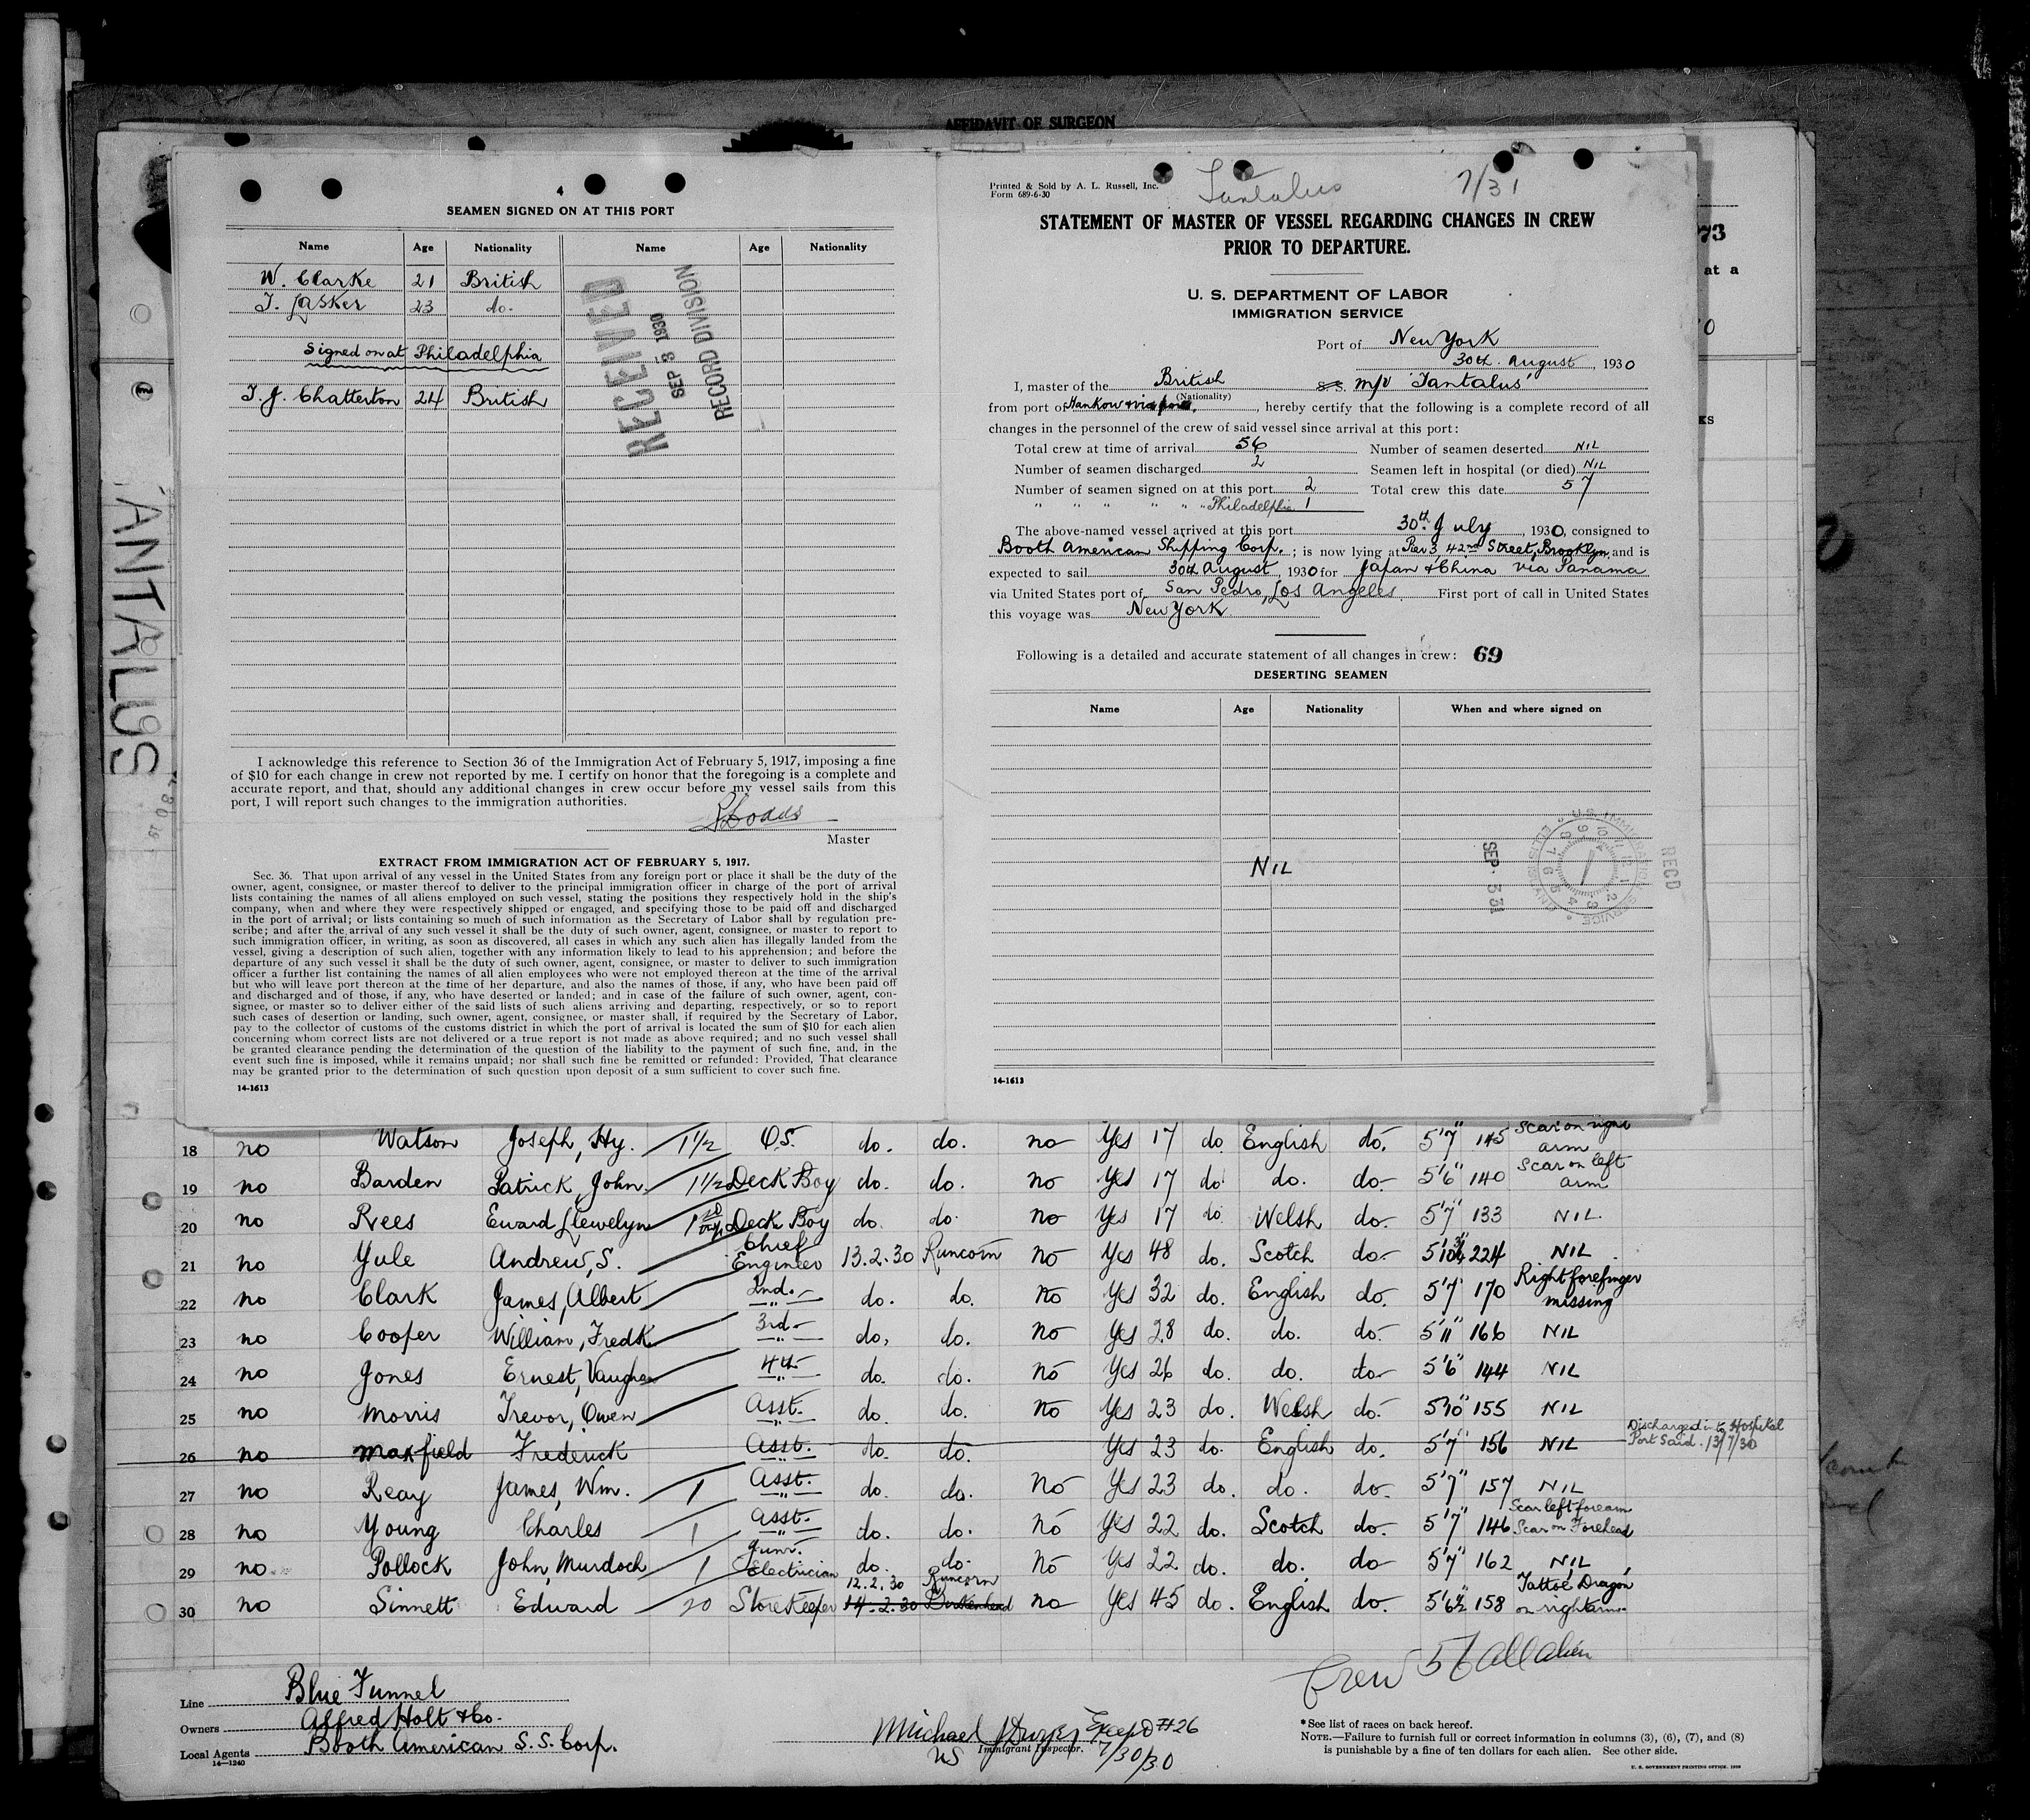 AFFIDAVIT OF SURGEON
4
SEAMEN SIGNED ON AT THIS PORT
Name Age Nationality Name Age Nationality
W. Clarke 21 British
T. Lasker 23 do.
Signed on at Philadelphia
T. J. Chatterton 24 British
RECEIVED
SEP 3 1930
RECORD DIVISION
I acknowledge this reference to Section 36 of the Immigration Act of February 5, 1917, imposing a fine
of $10 for each change in crew not reported by me. I certify on honor that the foregoing is a complete and
accurate report, and that, should any additional changes in crew occur before my vessel sails from this
port, I will report such changes to the immigration authorities.
Master
EXTRACT FROM IMMIGRATION ACT OF FEBRUARY 5, 1917.
Sec. 36. That upon arrival of any vessel in the United States from any foreign port or place it shall be the duty of the
owner, agent, consignee, or master thereof to deliver to the principal immigration officer in charge of the port of arrival
lists containing the names of all aliens employed on such vessel, stating the positions they respectively hold in the ship's
company, when and where they were respectively shipped or engaged, and specifying those to be paid off and discharged
in the port of arrival; or lists containing so much of such information as the Secretary of Labor shall by regulation pre-
scribe; and after the arrival of any such vessel it shall be the duty of such owner, agent, consignee, or master to report to
such immigration officer, in writing, as soon as discovered, all cases in which any such alien has illegally landed from the
vessel, giving a description of such alien, together with any information likely to lead to his apprehension; and before the
departure of any such vessel it shall be the duty of such owner, agent, consignee, or master to deliver to such immigration
officer a further list containing the names of all alien employees who were not employed thereon at the time of the arrival
but who will leave port thereon at the time of her departure, and also the names of those, if any, who have been paid off
and discharged and of those, if any, who have deserted or landed; and in case of the failure of such owner, agent, con-
signee, or master so to deliver either of the said lists of such aliens arriving and departing, respectively, or so to report
such cases of desertion or landing, such owner, agent, consignee, or master shall, if required by the Secretary of Labor,
pay to the collector of customs of the customs district in which the port of arrival is located the sum of $10 for each alien
concerning whom correct lists are not delivered or a true report is not made as above required; and no such vessel shall
be granted clearance pending the determination of the question of the liability to the payment of such fine, and, in the
event such fine is imposed, while it remains unpaid; nor shall such fine be remitted or refunded: Provided, That clearance
may be granted prior to the determination of such question upon deposit of a sum sufficient to cover such fine.
14-1613
Printed & Sold by A. L. Russell, Inc.
Form 689-6-30
Tantalus 7/31
STATEMENT OF MASTER OF VESSEL REGARDING CHANGES IN CREW
PRIOR TO DEPARTURE.
U. S. DEPARTMENT OF LABOR
IMMIGRATION SERVICE
Port of New York
30th August, 1930
I, master of the British S.S. m/v 'Tantalus'
(Nationality)
from port of Hankow & via ports, hereby certify that the following is a complete record of all
changes in the personnel of the crew of said vessel since arrival at this port:
Total crew at time of arrival 56 Number of seamen deserted NIL
Number of seamen discharged 2 Seamen left in hospital (or died) NIL
Number of seamen signed on at this port 2 Total crew this date 57
" " " " " " Philadelphia 1
The above-named vessel arrived at this port 30th July, 1930, consigned to
Booth American Shipping Corp.; is now lying at Pier 3, 42nd Street, Brooklyn, and is
expected to sail 30th August, 1930 for Japan & China via Panama
via United States port of San Pedro, Los Angeles. First port of call in United States
this voyage was New York
Following is a detailed and accurate statement of all changes in crew: 69
DESERTING SEAMEN
Name Age Nationality When and where signed on
NIL
SEP. 3 31
U.S. IMMIGRATION SERVICE
RECD
14-1613
73
at a
0
KS
TANTALUS
18 no Watson Joseph, Hy. 1½ O.S. do. do. no Yes 17 do English do. 5'7" 145 Scar on right arm
19 no Barden Patrick, John. 1½ Deck Boy do. do. no Yes 17 do. do. do- 5'6" 140 Scar on left arm
20 no Rees Eward Llewelyn 1st Deck Boy do. do. no Yes 17 do. Welsh do- 5'7" 133 NIL.
21 no Yule Andrew, S. Chief Engineer 13.2.30 Runcorn no Yes 48 do. Scotch do- 5'10¾ 224 NIL
22 no Clark James, Albert 2nd. -"- do. do. no Yes 32 do. English do. 5'7" 170 Right forefinger missing
23 no Cooper William, Fredk 3rd -"- do. do. no Yes 28 do. do. do- 5'11" 166 NIL
24 no Jones Ernest, Vaughan 4th -"- do. do. no Yes 26 do. do. do- 5'6" 144 NIL
25 no Morris Trevor, Owen Asst. -"- do. do. no Yes 23 do. Welsh do- 5'10" 155 NIL
26 no Maxfield Frederick Asst. -"- do. do. Yes 23 do. English do. 5'7" 156 NIL Discharged into Hospital Port Said. 13/7/30
27 no Reay James, Wm. 1 Asst. -"- do. do. no Yes 23 do. do. do- 5'7" 157 NIL
28 no Young Charles 1 Asst. -"- do. do. no Yes 22 do. Scotch do- 5'7" 146 Scar left forearm Scar on Forehead
29 no Pollock John, Murdoch 1 Junr. Electrician do. do. no Yes 22 do. do. do- 5'7" 162 NIL
30 no Sinnett Edward 20 Storekeeper 12.2.30 Runcorn 14.2.30 Birkenhead no Yes 45 do. English do. 5'6½" 158 Tattoe Dragon on right arm.
Crew 56 all alien
Line Blue Funnel
Owners Alfred Holt & Co.
Local Agents Booth American S. S. Corp.
14—1240
Michael J Dwyer Except #26
US Immigrant Inspector. 7/30/30
*See list of races on back hereof.
NOTE.—Failure to furnish full or correct information in columns (3), (6), (7), and (8)
is punishable by a fine of ten dollars for each alien. See other side.
U. S. GOVERNMENT PRINTING OFFICE: 1929